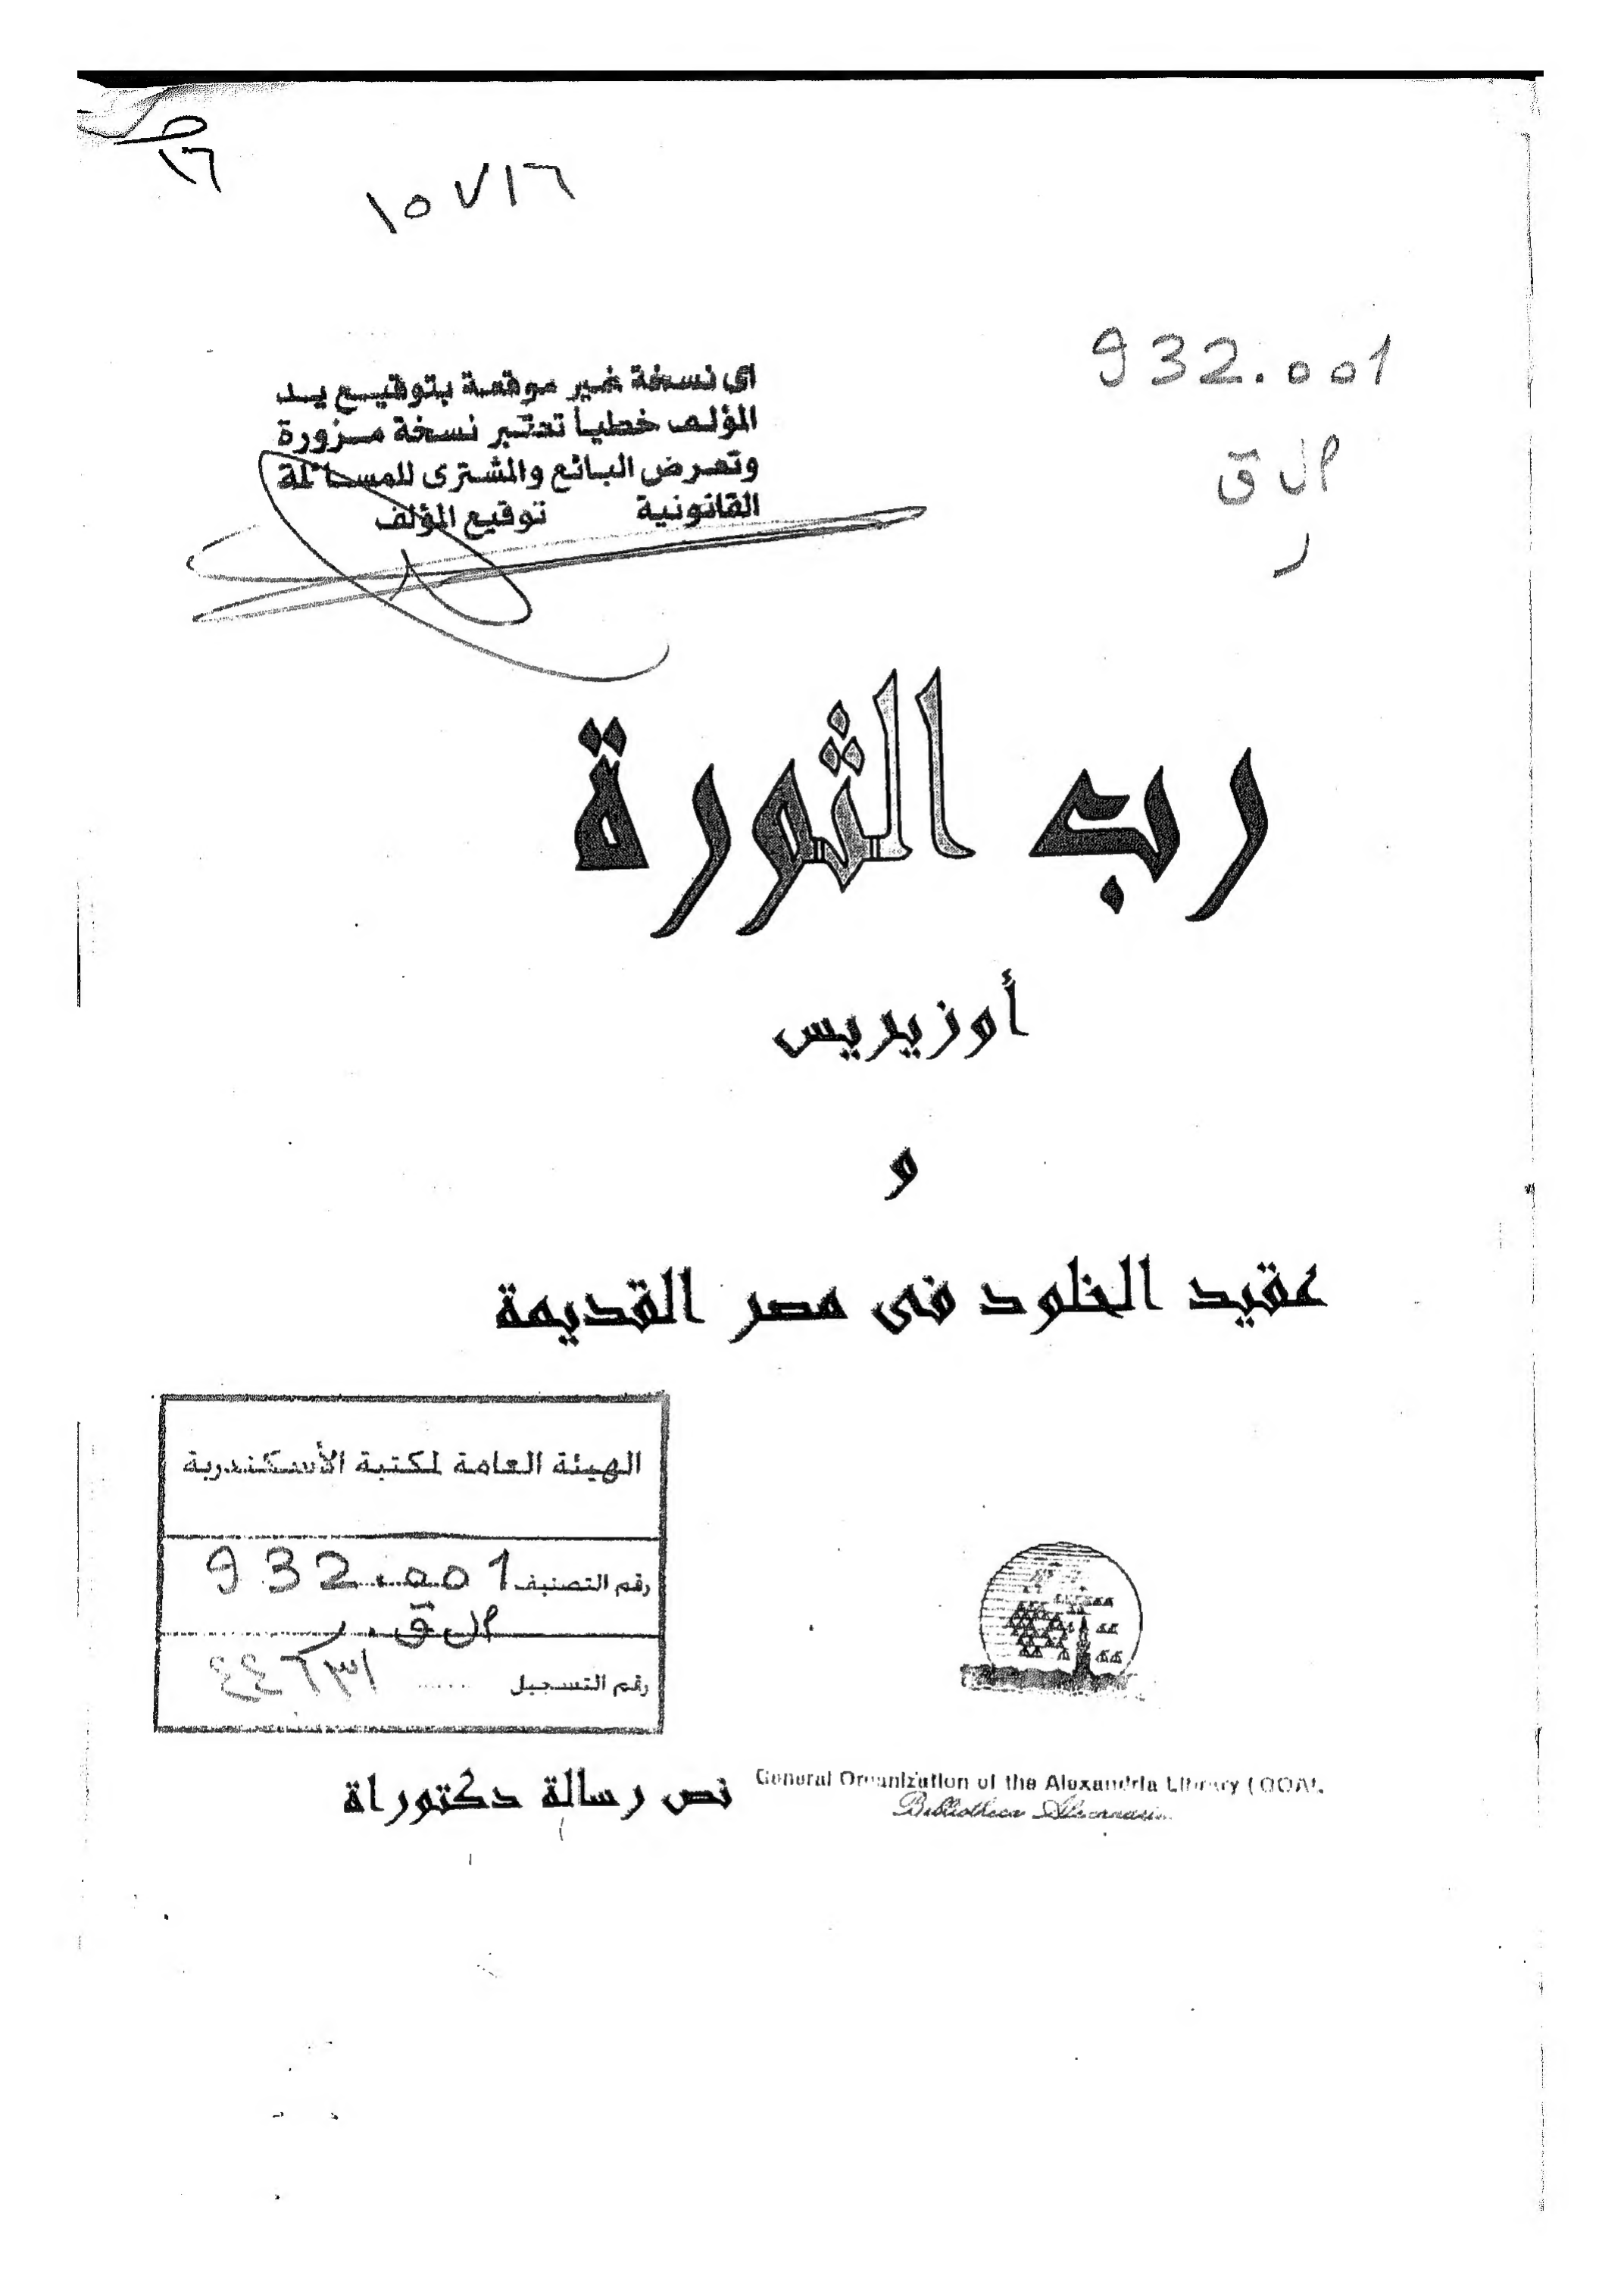 ١٦
١٥٧١٦
932.001
ال ق
ر
اى نسخة غير موقعة بتوقيع يد
المؤلف خطياً تعتبر نسخة مزورة
وتعرض البائع والمشترى للمساءلة
القانونية توقيع المؤلف
رب الثورة
أوزيريس
و
عقيد الخلود فى مصر القديمة
الهيئة العامة لمكتبة الأسكندرية
رقم التصنيف 932.001
ال ق . ر
رقم التسجيل ٤٤٦٣١
نص رسالة دكتوراة
General Organization of the Alexandria Library (GOAL
Bibliotheca Alexandrina